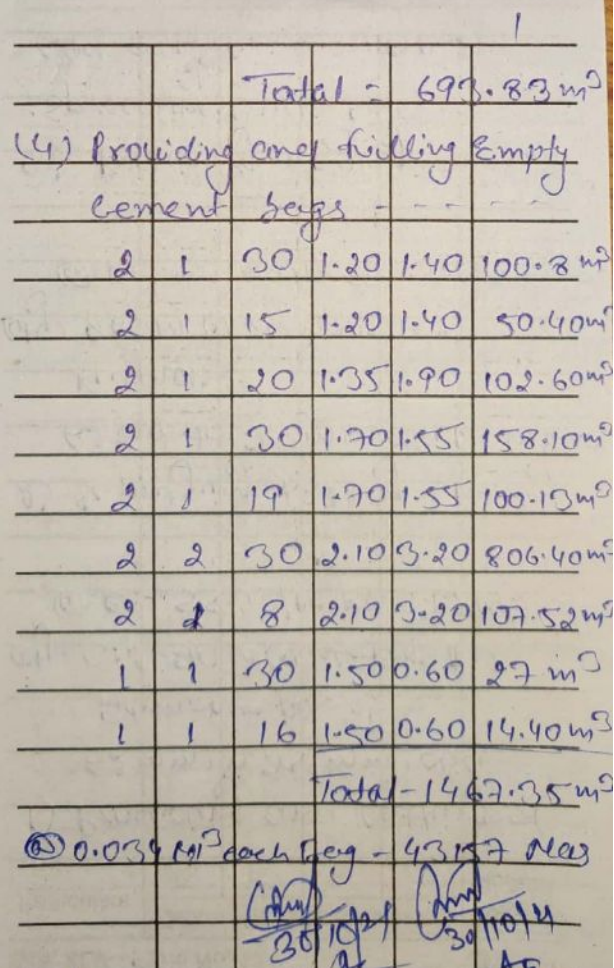 1
Total = 693.83 m³
(4) Providing and filling Empty
cement bags - - - - -
2 1 30 1.20 1.40 100.8 m³
2 1 15 1.20 1.40 50.40 m³
2 1 20 1.35 1.90 102.60 m³
2 1 30 1.70 1.55 158.10 m³
2 1 19 1.70 1.55 100.13 m³
2 2 30 2.10 3.20 806.40 m³
2 1 8 2.10 3.20 107.52 m³
1 1 30 1.50 0.60 27 m³
1 1 16 1.50 0.60 14.40 m³
Total - 1467.35 m³
@ 0.034 M³ each bag - 43157 Nos
30/10/21 30/10/21